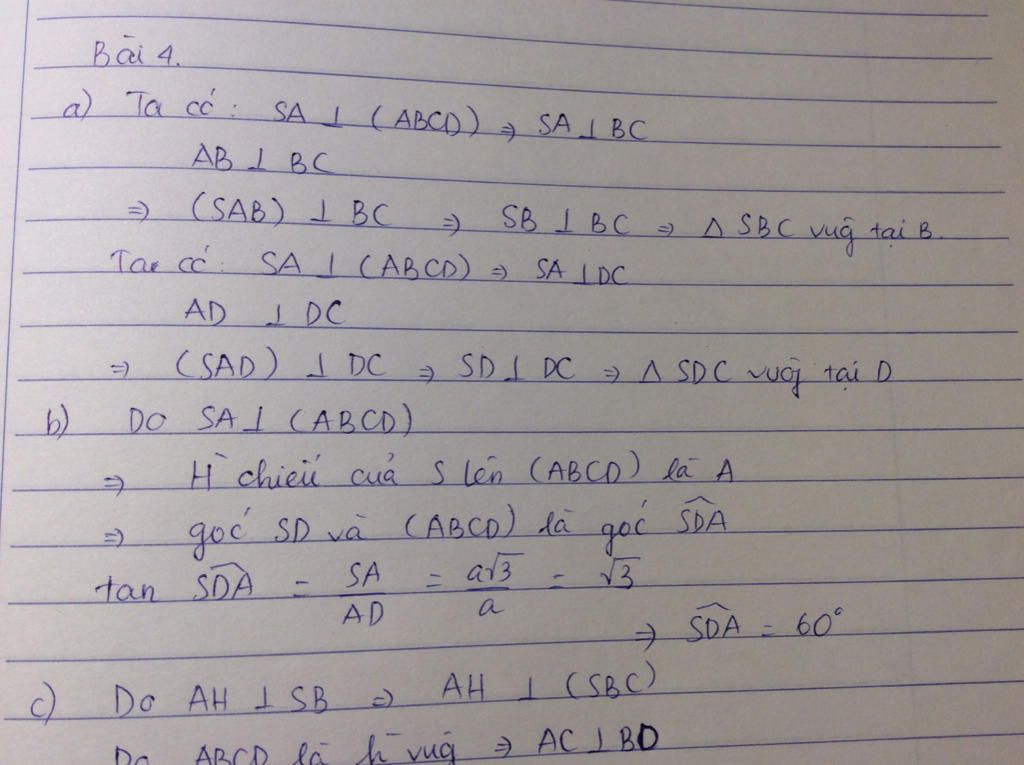 Bài 4.
a) Ta có: SA ⊥ (ABCD) ⇒ SA ⊥ BC
AB ⊥ BC
⇒ (SAB) ⊥ BC ⇒ SB ⊥ BC ⇒ Δ SBC vug̃ tại B.
Ta có: SA ⊥ (ABCD) ⇒ SA ⊥ DC
AD ⊥ DC
⇒ (SAD) ⊥ DC ⇒ SD ⊥ DC ⇒ Δ SDC vug̃ tại D
b) Do SA ⊥ (ABCD)
⇒ H̀ chiếu của S lên (ABCD) là A
⇒ góc SD và (ABCD) là góc \widehat{SDA}
tan \widehat{SDA} = \frac{SA}{AD} = \frac{a√3}{a} = √3
⇒ \widehat{SDA} = 60°
c) Do AH ⊥ SB ⇒ AH ⊥ (SBC)
Do ABCD là h̀ vug̃ ⇒ AC ⊥ BD